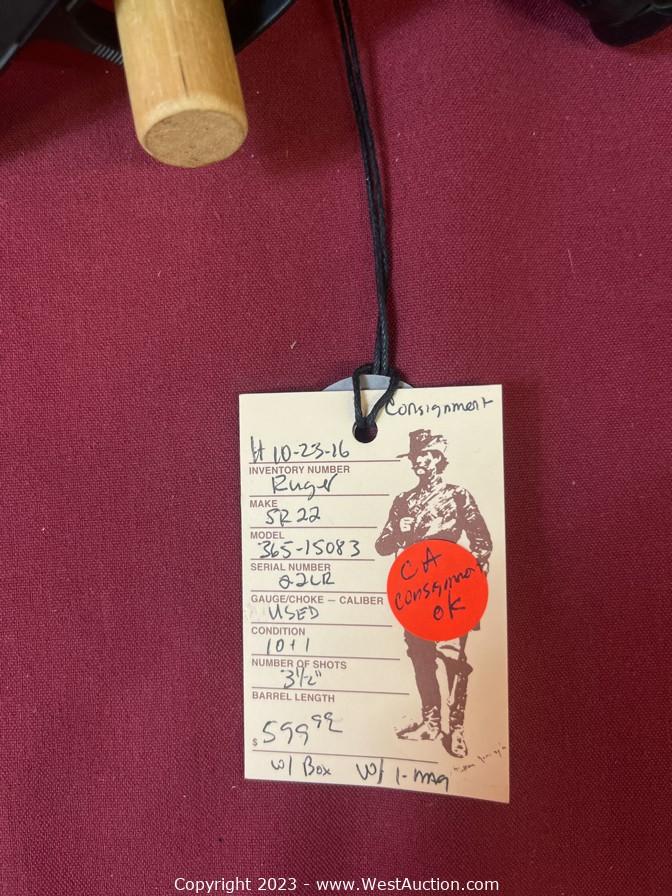 Consignment
# 10-23-16
INVENTORY NUMBER
Ruger
MAKE
SR22
MODEL
365-15083
SERIAL NUMBER
22LR
GAUGE/CHOKE — CALIBER
USED
CONDITION
10+1
NUMBER OF SHOTS
3½"
BARREL LENGTH
$ 599 99
w/ Box w/ 1-mag
CA
consignment
OK
Copyright 2023 - www.WestAuction.com